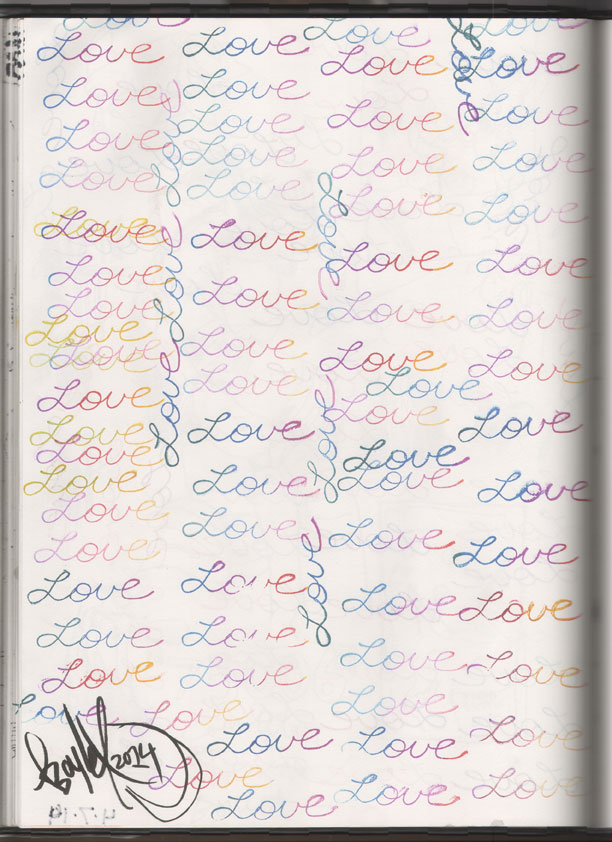 Love Love Love Love
Love Love Love Love
Love Love Love Love
Love Love Love Love
Love Love Love Love
Love Love Love Love
Love Love Love Love
Love Love Love Love
Love Love Love Love
Love Love Love Love
Love Love Love Love
Love Love Love Love
Love Love Love Love
Love Love Love Love
Love Love Love Love
Love Love Love
Love Love Love
Love Love Love
Love Love
Love
Love
Love
Love
Love
Love
Love
Love
Love
Love
2014
4.7.14